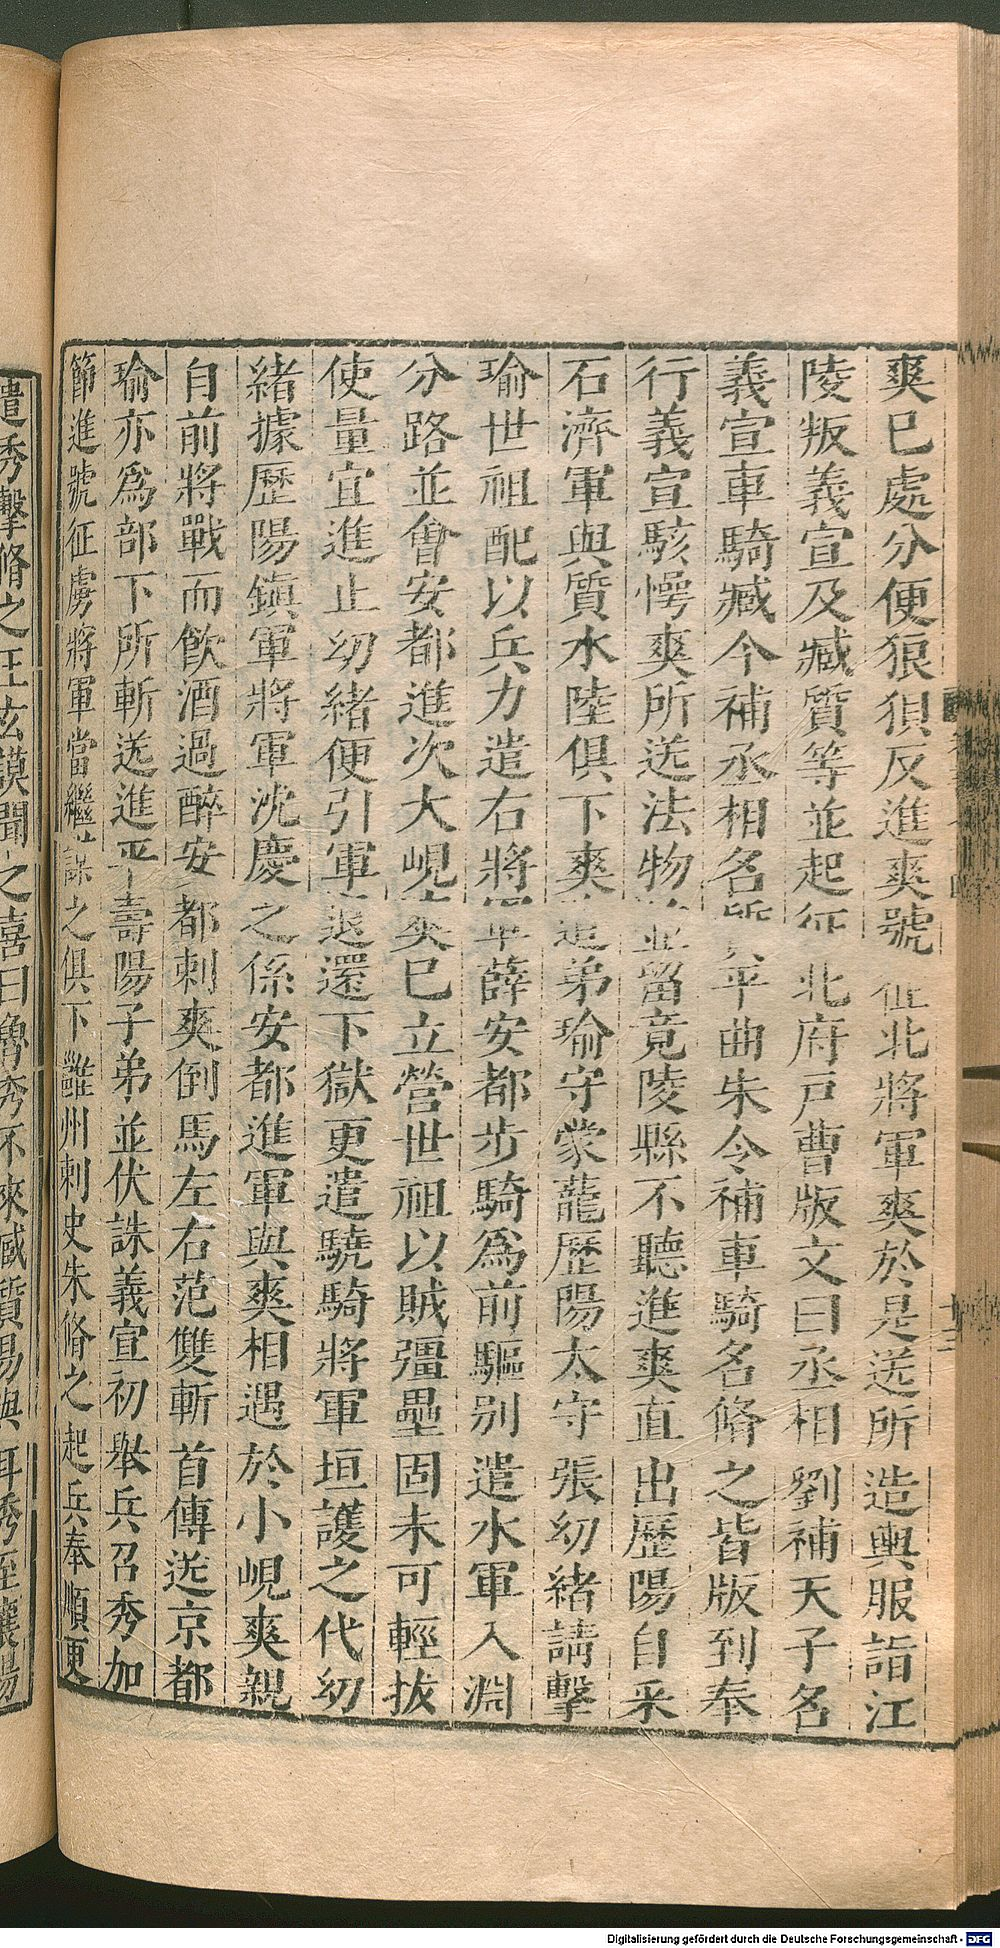 爽已處分便狼狽反進爽號征北將軍爽於是送所造輿服詣江
陵叛義宣及臧質等並起征北府戶曹版文曰丞相劉補天子名
義宣車騎臧今補丞相名質平曲朱今補車騎名脩之皆版到奉
行義宣駭愕爽所送法物並留竟陵縣不聽進爽直出歷陽自采
石濟軍與質水陸俱下爽遣弟瑜守蒙蘢歷陽太守張幼緒請擊
瑜世祖配以兵力遣右將軍薛安都步騎為前驅别遣水軍入淵
分路並會安都進次大峴爽已立營世祖以賊彊壘固未可輕拔
使量宜進止幼緒便引軍退還下獄更遣驍騎將軍垣護之代幼
緒據歷陽鎮軍將軍沈慶之係安都進軍與爽相遇於小峴爽親
自前將戰而飲酒過醉安都刺爽倒馬左右范雙斬首傳送京都
瑜亦為部下所斬送進平壽陽子弟並伏誅義宣初舉兵召秀加
節進號征虜將軍當繼謀之俱下雝州刺史朱脩之起兵奉順更
遣秀擊脩之王玄謨聞之喜曰魯秀不來臧質易與耳秀至襄陽
Digitalisierung gefördert durch die Deutsche Forschungsgemeinschaft - DFG